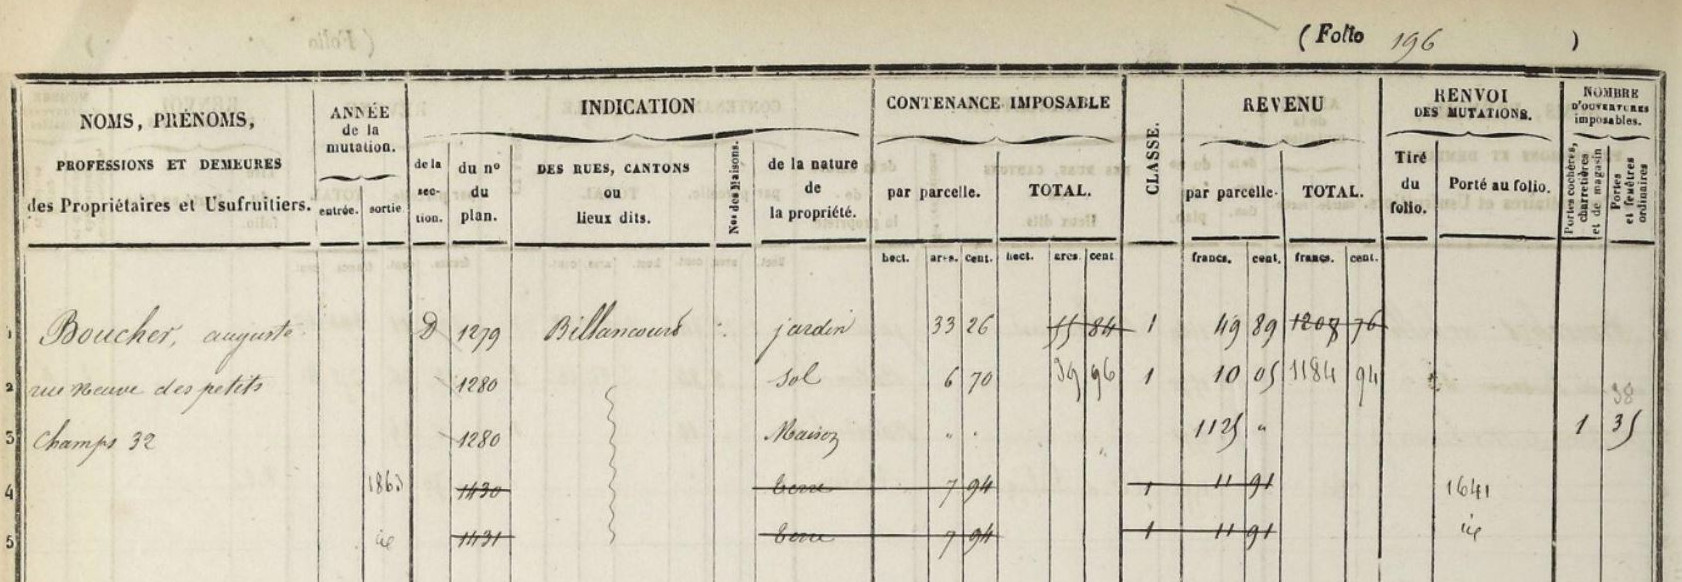 ( Folio 196 )
NOMS, PRÉNOMS,
PROFESSIONS ET DEMEURES
des Propriétaires et Usufruitiers.
ANNÉE
de la
mutation.
entrée. sortie
INDICATION
de la
sec-
tion.
du nº
du
plan.
DES RUES, CANTONS
ou
lieux dits.
Nos des Maisons.
de la nature
de
la propriété.
CONTENANCE IMPOSABLE
par parcelle. TOTAL.
CLASSE.
REVENU
par parcelle. TOTAL.
RENVOI
DES MUTATIONS.
Tiré
du
folio.
Porté au folio.
NOMBRE
D'OUVERTURES
imposables.
Portes cochères,
charretières
et de magasin
Portes
et fenêtres
ordinaires
hect. ares. cent. hect. ares. cent francs. cent. francs. cent.
1 Boucher, auguste D 1279 Billancourt jardin 33 26 55 84 1 49 89 1208 76
2 rue neuve des petits 1280 Sol 6 70 39 96 1 10 05 1184 94 38
3 Champs 32 1280 Maison " " 1125 " 1 35
4 1863 1430 terre 7 94 1 11 91 1641
5 id 1431 terre 7 94 1 11 91 id